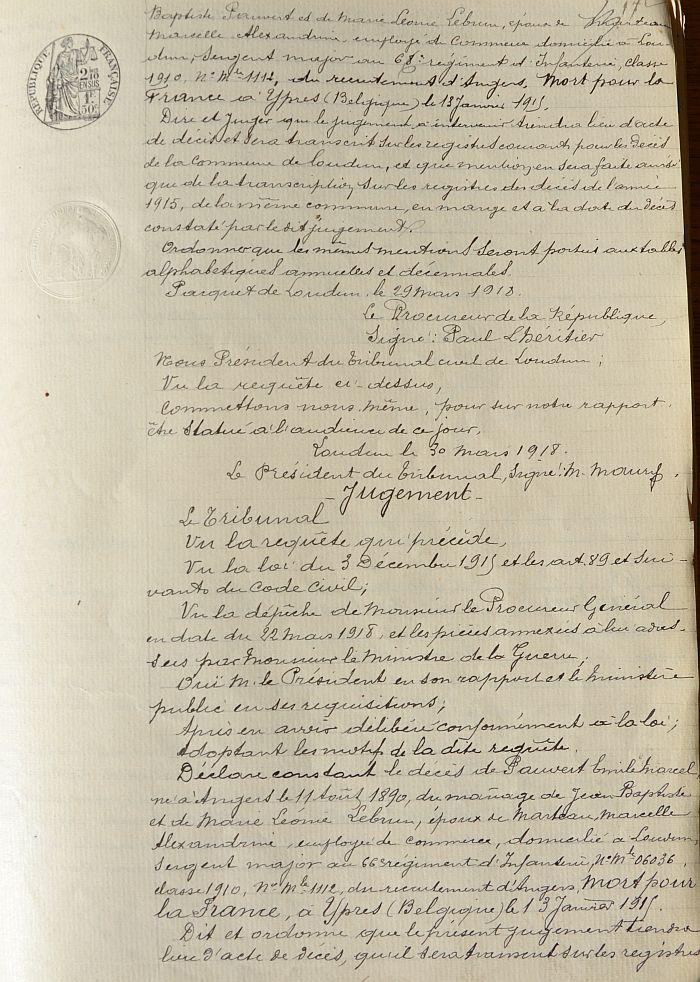 Baptiste Pauvert et de Marie Léonie Lebrun, époux de
Marcelle Alexandrine, employé de Commerce domicilié à Lou-
dun, Sergent major au 68e régiment d'Infanterie, classe
1910, No Mle 1112, du recrutement d'Angers, Mort pour la
France à Ypres (Belgique) le 13 Janvier 1915.
Dire et Juger que le jugement à intervenir tiendra lieu d'acte
de décès et sera transcrit sur les registres courants pour les décès
de la Commune de Loudun, et que mention en sera faite ainsi
que de la transcription sur les registres des décès de l'année
1915, de la même commune, en marge et à la date du décès
constaté par le dit jugement.
Ordonner que les mêmes mentions seront portées aux tables
alphabétiques annuelles et décennales.
Parquet de Loudun, le 29 mars 1918.
Le Procureur de la République,
Signé: Paul Lhéritier
Nous Président du Tribunal civil de Loudun,
Vu la requête ci-dessus,
Commettons nous même, pour sur notre rapport
être statué à l'audience de ce jour.
Loudun le 30 mars 1918.
Le Président du Tribunal, Signé: M.
- Jugement -
Le Tribunal
Vu la requête qui précède,
Vu la loi du 3 Décembre 1915 et les art. 89 et sui-
vants du Code Civil;
Vu la dépêche de Monsieur le Procureur Général
en date du 22 mars 1918, et les pièces annexées à lui adres-
sées par Monsieur le Ministre de la Guerre,
Ouï M. le Président en son rapport et le ministère
public en ses requisitions;
Après en avoir délibéré conformément à la loi;
Adoptant les motifs de la dite requête.
Déclare constant le décès de Pauvert Emile Marcel,
né à Angers le 11 Août 1890, du mariage de Jean Baptiste
et de Marie Léonie Lebrun, époux de Marteau Marcelle
Alexandrine, employé de commerce, domicilié à Loudun,
Sergent major au 66e régiment d'Infanterie, No Mle 06036,
classe 1910, No Mle 1112, du recrutement d'Angers, Mort pour
la France, à Ypres (Belgique) le 13 Janvier 1915.
Dit et ordonne que le présent jugement tiendra
lieu d'acte de décès, qu'il sera transcrit sur les registres
RÉPUBLIQUE FRANÇAISE